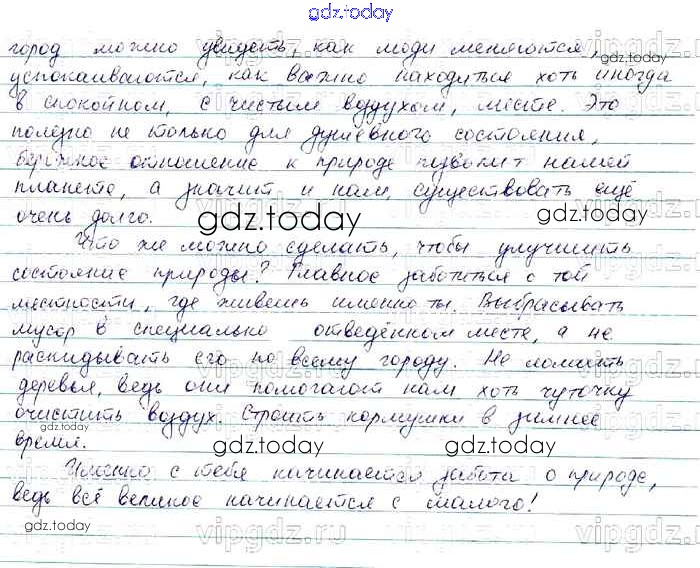 gdz.today
город можно увидеть, как люди меняются,
успокаиваются, как важно находиться хоть иногда
в спокойном, с чистым воздухом, месте. Это
полезно не только для душевного состояния,
бережное отношение к природе позволит нашей
планете, а значит и нам, существовать ещё
очень долго.
gdz.today
gdz.today
Что же можно сделать, чтобы улучшить
состояние природы? Главное заботиться о той
местности, где живёшь именно ты. Выбрасывать
мусор в специально отведённом месте, а не
раскидывать его по всему городу. Не ломать
деревья, ведь они помогают нам хоть чуточку
очистить воздух. Строить кормушки в зимнее
время.
gdz.today
gdz.today
Именно с тебя начинается забота о природе,
ведь всё великое начинается с малого!
gdz.today
vipgdz.ru